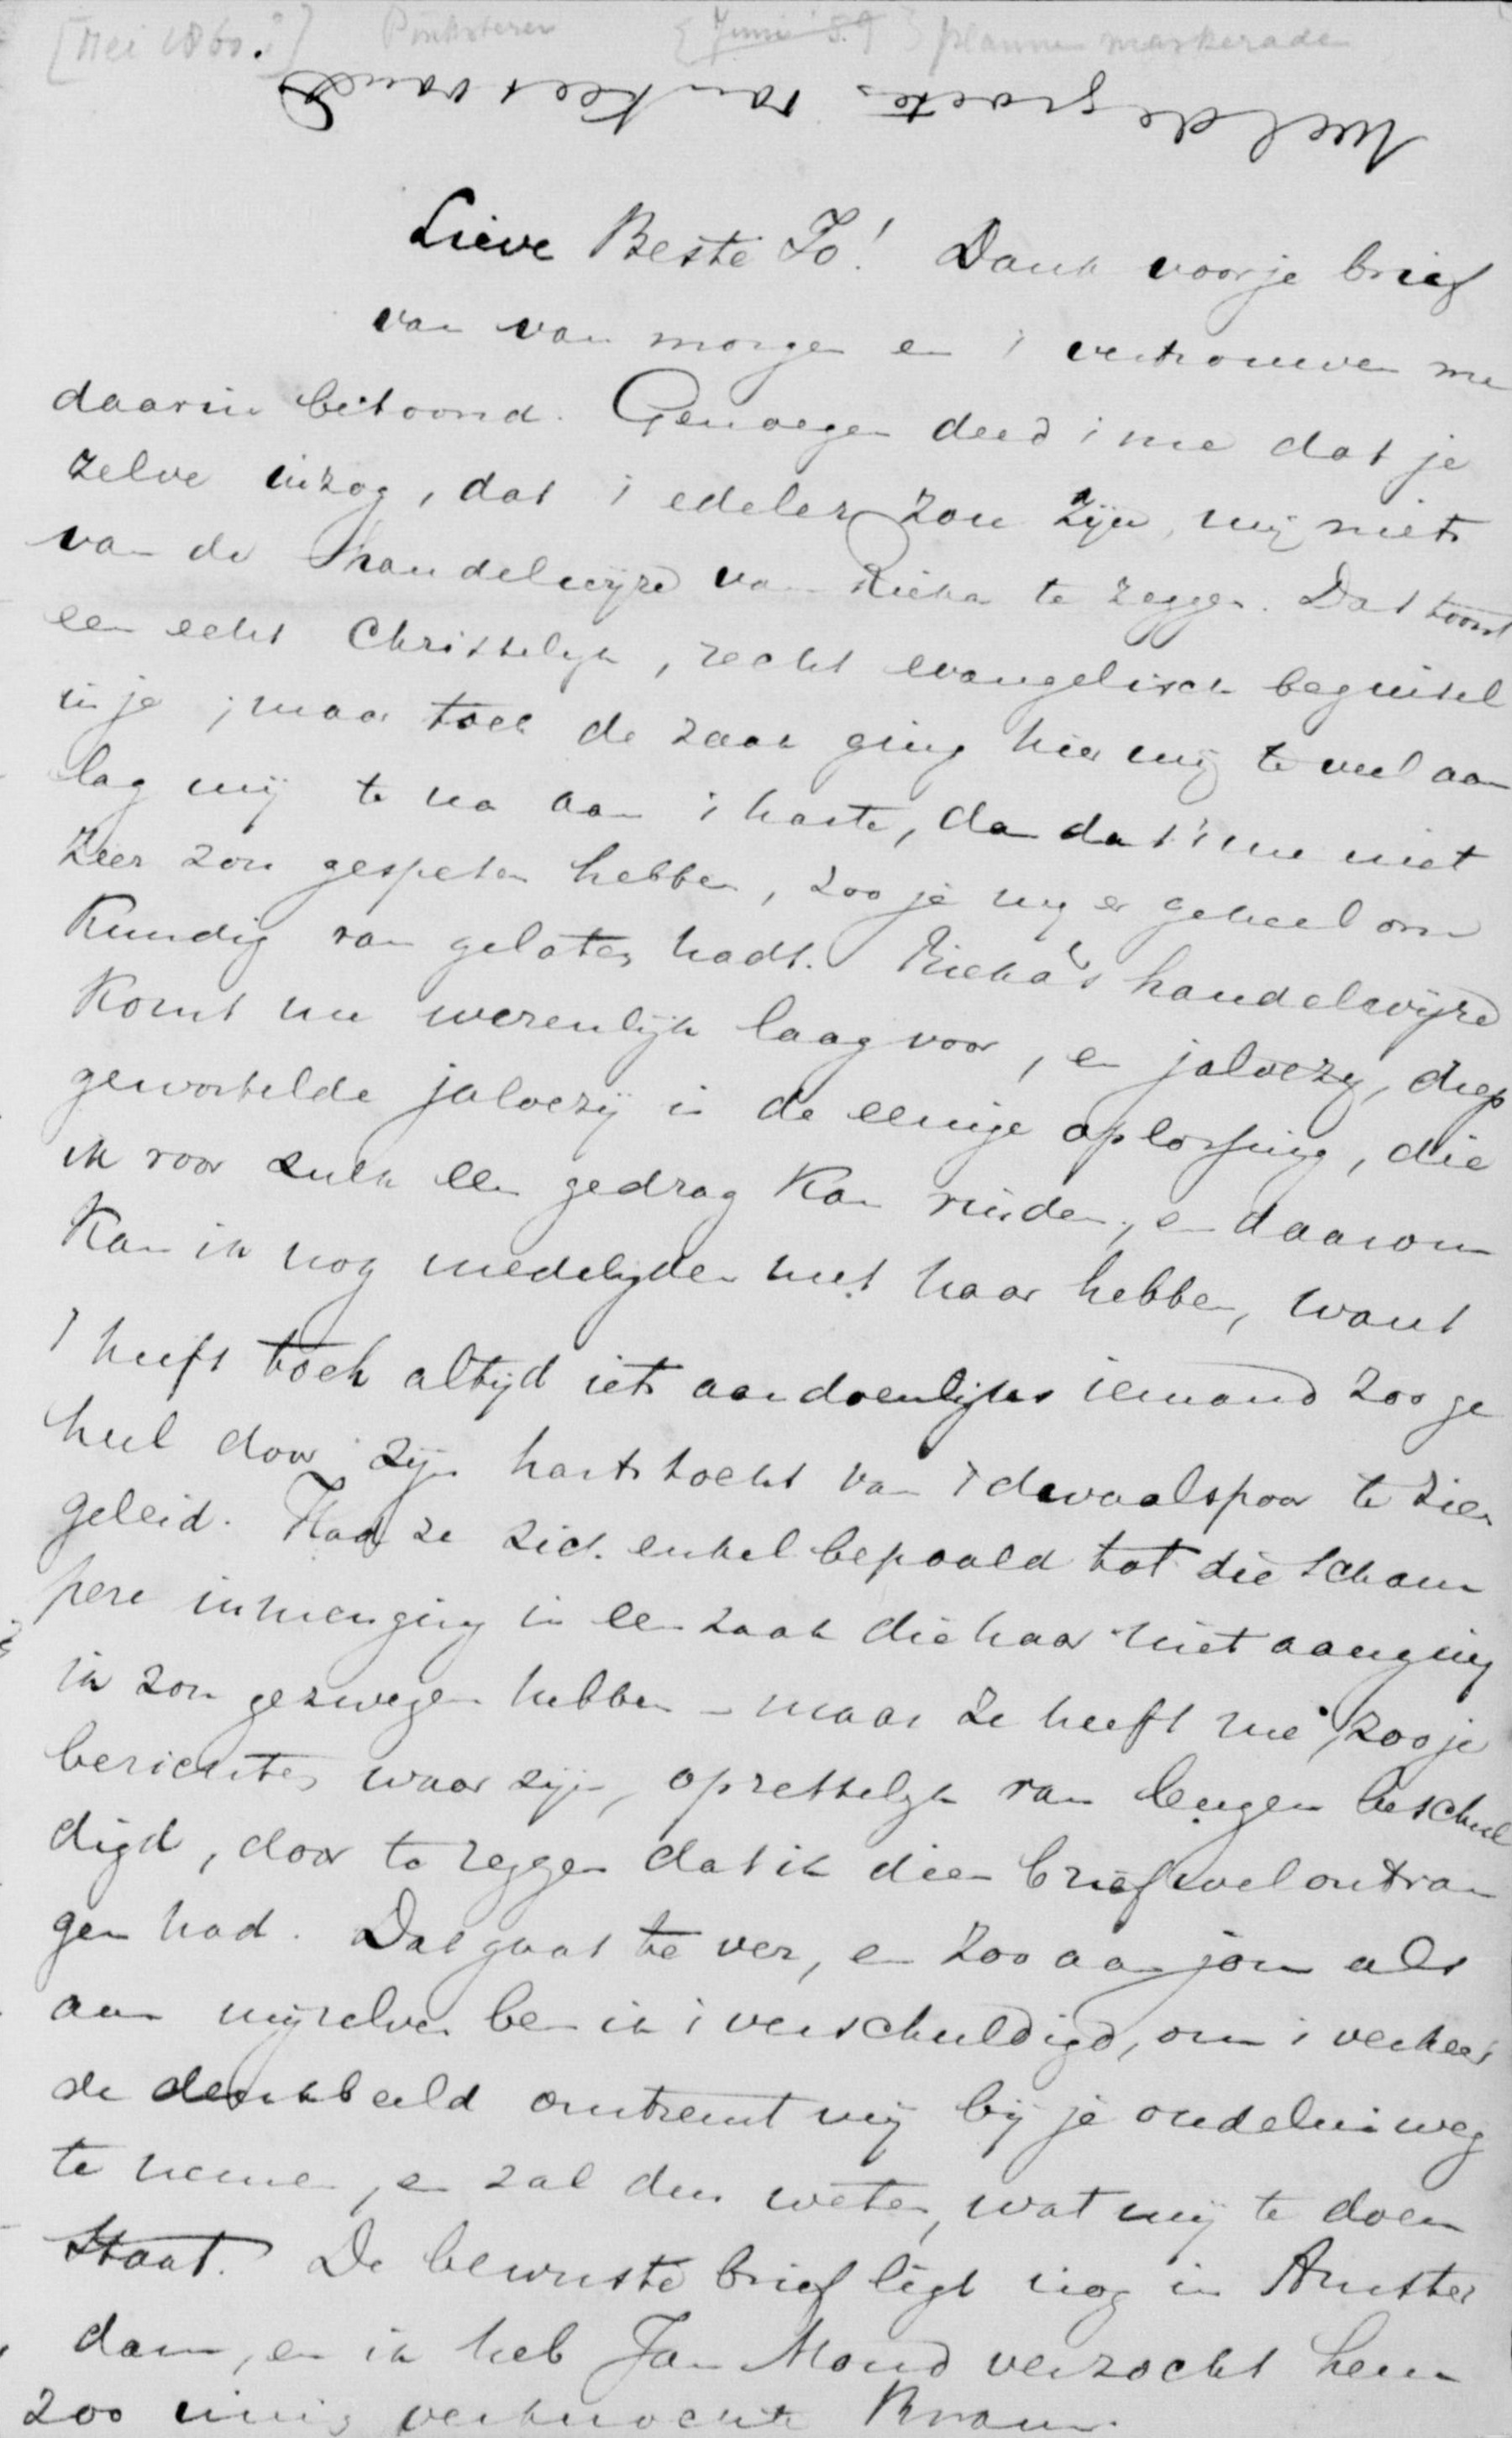 [Mei 1860.?] Pinksteren [Juni 59] plannen maskerade
Veel de groeten van Kees van
Lieve Beste Jo! Dank voor je brief
van van morgen en 't vertrouwen me
daarin betoond. Genoegen deed 't me dat je
zelve inzag, dat 't edeler zou zijn, mij niets
van de handelwijze van Rieka te zeggen. Dat toont
een echt Christelijk, recht evangelisch beginsel
in je; maar toch de zaak ging hier mij te veel aan
lag mij te na aan 't harte, dan dat 't me niet
zeer zou gespeten hebben, zoo je mij er geheel on
kundig van gelaten hadt. Rieka's handelwijze
komt me wezenlijk laag voor, en jaloezij, diep
gewortelde jaloezij is de eenige oplossing, die
ik voor zulk een gedrag kan vinden, en daarom
kan ik nog medelijden met haar hebben, want
't heeft toch altijd iets aandoenlijks iemand zoo ge
heel door zijn hartstocht van 't dwaalspoor te zien
geleid. Had ze zich enkel bepaald tot die scham
pere inmenging in een zaak die haar niet aanging
ik zou gezwegen hebben – maar ze heeft me, zoo je
berichten waar zijn, opzettelijk van leugen beschul
digd, door te zeggen dat ik dien brief wel ontvan
gen had. Dat gaat te ver, en zoo aan jou als
aan mijzelven ben ik 't verschuldigd, om 't verkeer
de denkbeeld omtrent mij bij je oudelui weg
te nemen, en zal dus weten, wat mij te doen
staat. De bewuste brief ligt nog in Amster
dam, en ik heb Jan Mond verzocht hem
zoo innig verknochte Bram.